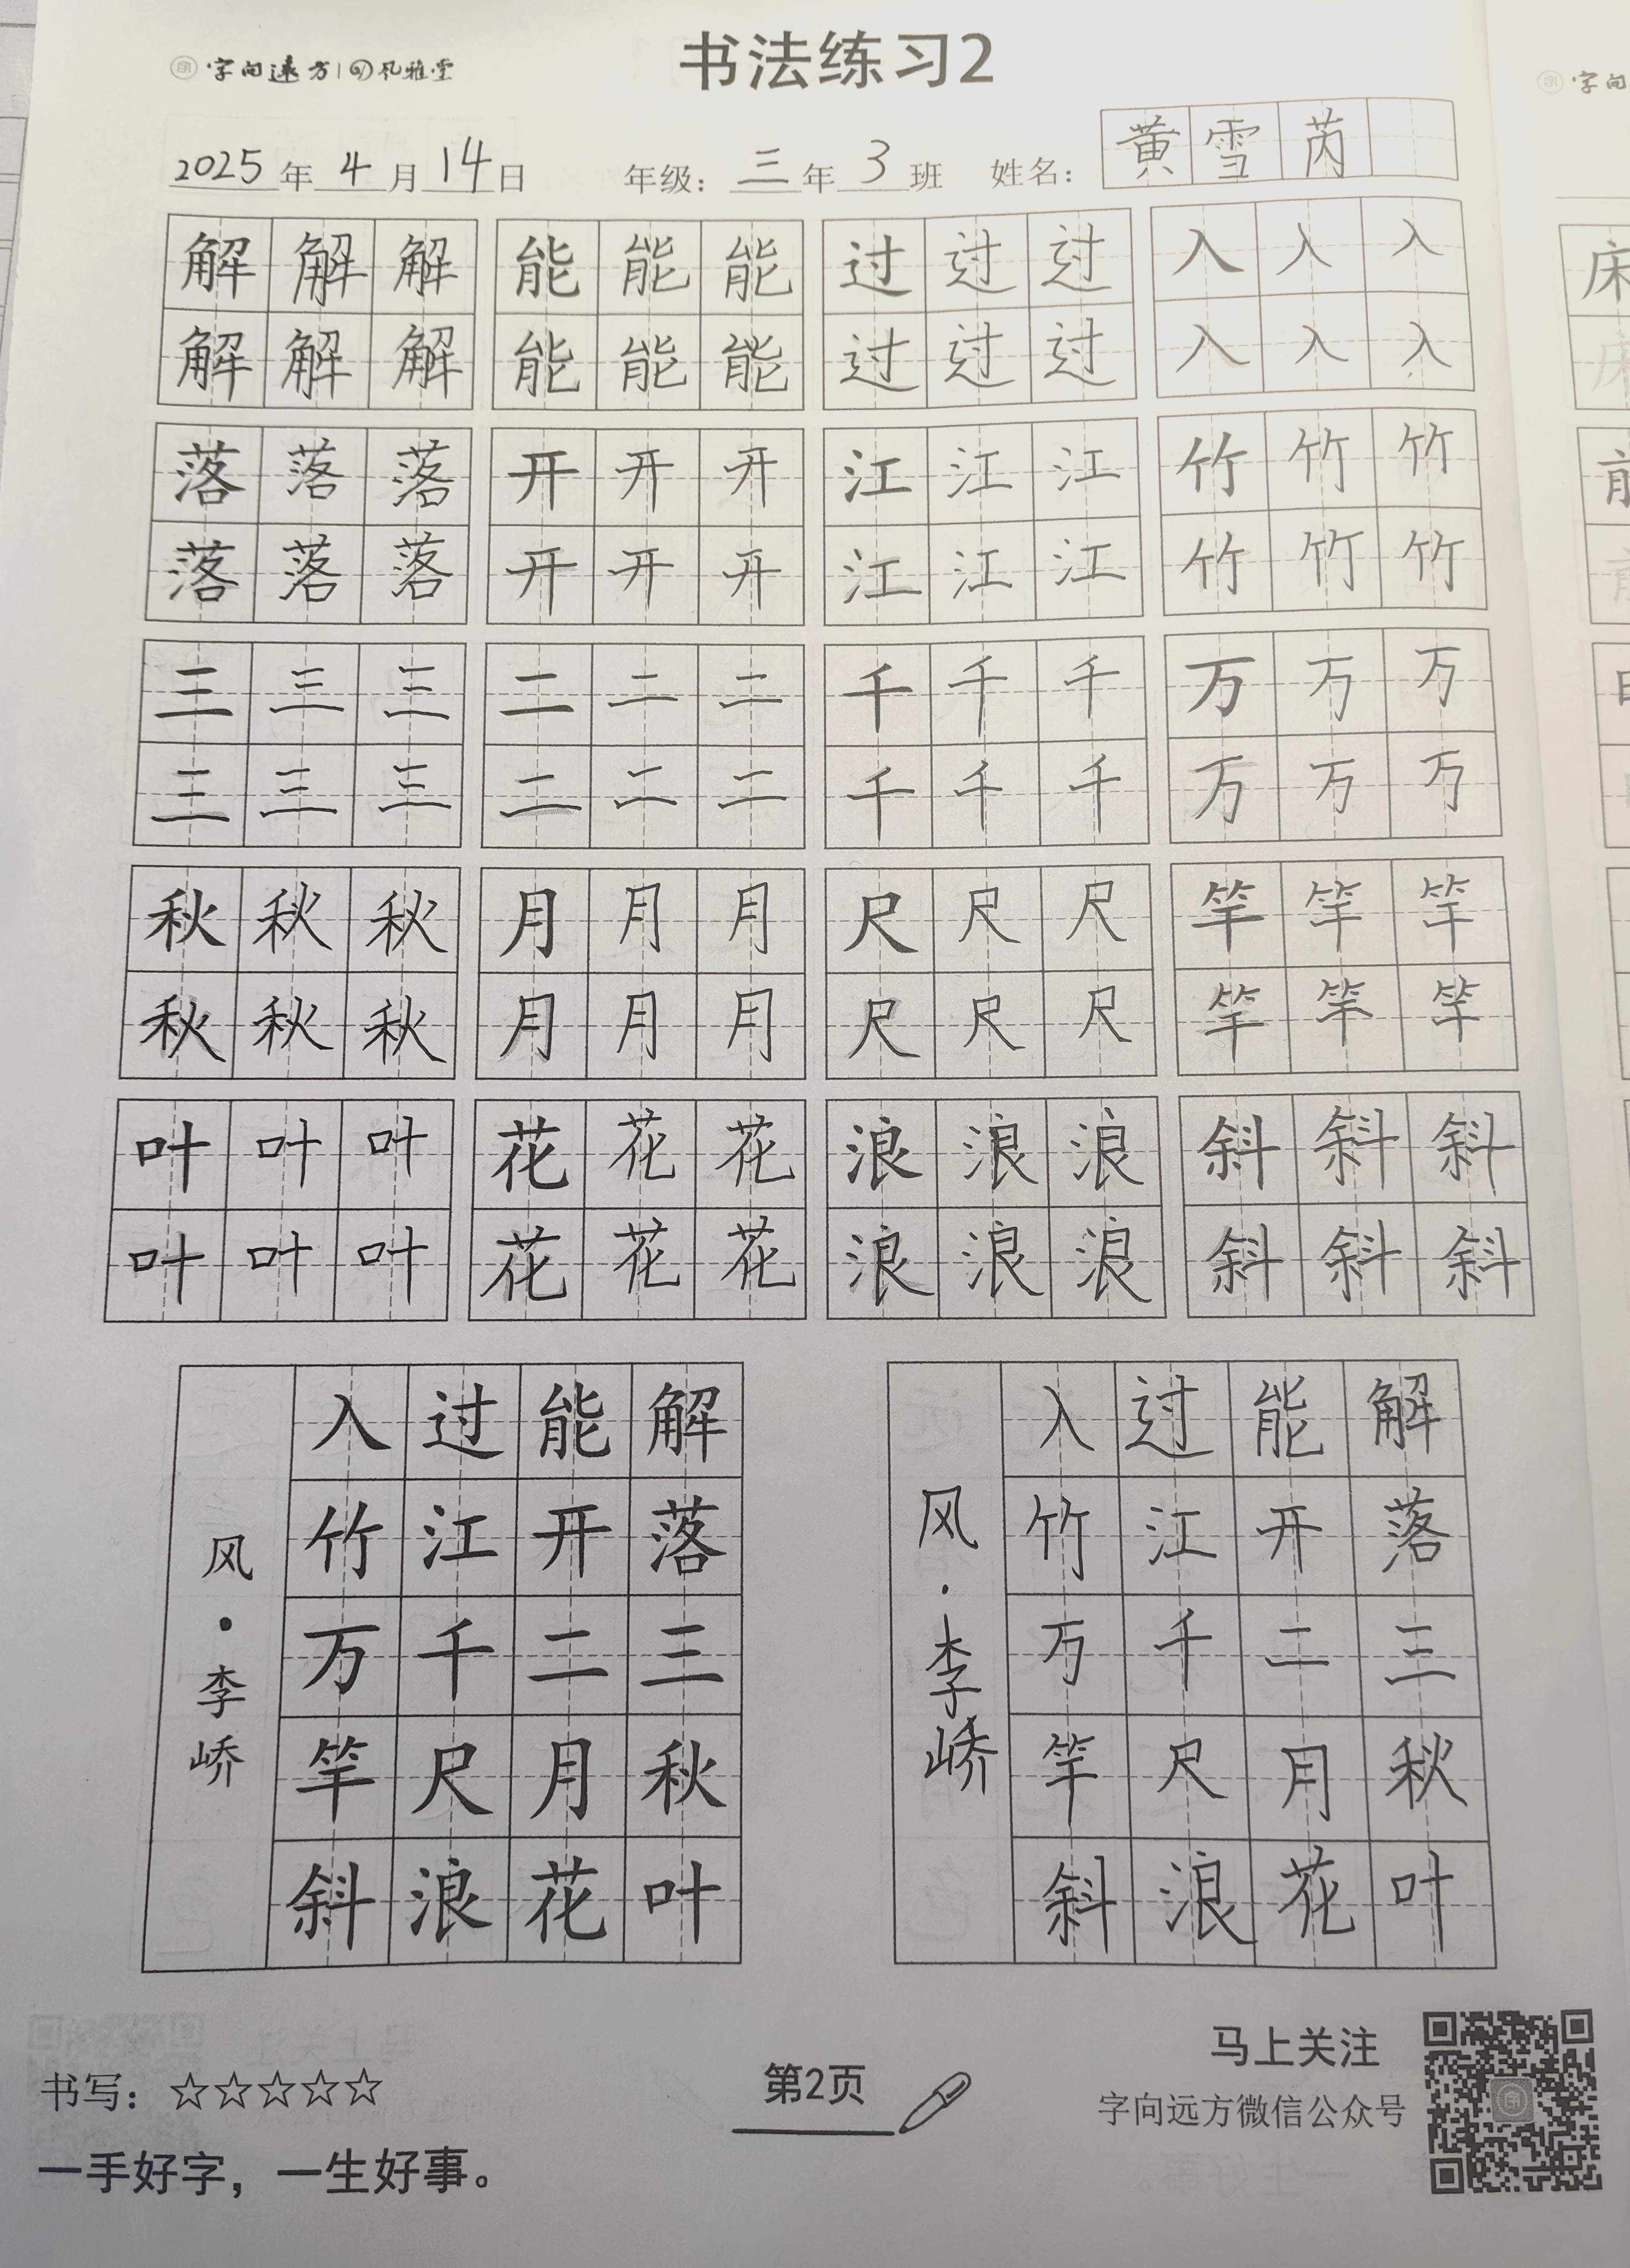 字向远方 风雅堂
书法练习2
字向
2025年4月14日 年级：三年3班 姓名：黄雪芮
解解解 能能能 过过过 入入入
解解解 能能能 过过过 入入入
落落落 开开开 江江江 竹竹竹
落落落 开开开 江江江 竹竹竹
三三三 二二二 千千千 万万万
三三三 二二二 千千千 万万万
秋秋秋 月月月 尺尺尺 竿竿竿
秋秋秋 月月月 尺尺尺 竿竿竿
叶叶叶 花花花 浪浪浪 斜斜斜
叶叶叶 花花花 浪浪浪 斜斜斜
床
床
前
前
解落三秋叶
能开二月花
过江千尺浪
入竹万竿斜
风·李峤
解落三秋叶
能开二月花
过江千尺浪
入竹万竿斜
风·李峤
书写：☆☆☆☆☆
一手好字，一生好事。
第2页
马上关注
字向远方微信公众号